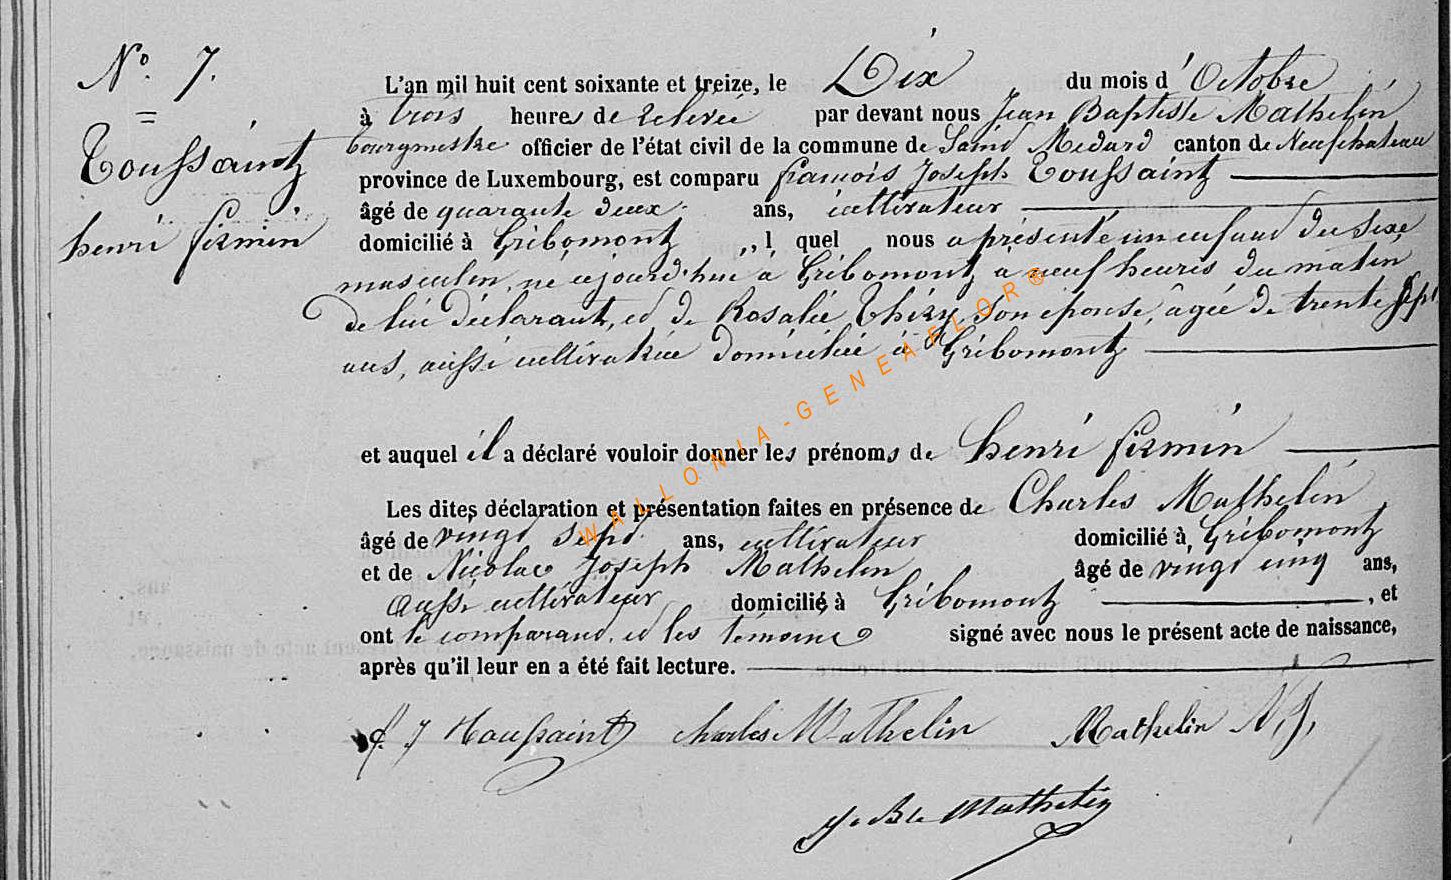 N°. 7.
=
Toussaint
henri firmin
L'an mil huit cent soixante et treize, le Dix du mois d'Octobre
à trois heures de relevée par devant nous Jean Baptiste Mathelin
bourgmestre officier de l'état civil de la commune de Saint Medard canton de Neufchateau
province de Luxembourg, est comparu francois Joseph Toussaint
âgé de quarante deux ans, cultivateur
domicilié à Gribomont, l quel nous a présenté un enfant du sexe
masculin, né cejourd'hui à Gribomont à neuf heures du matin
de lui déclarant, et de Rosalie Thiry son épouse, âgée de trente sept
ans, aussi cultivatrice domiciliée à Gribomont
et auquel il a déclaré vouloir donner les prénoms de henri firmin
Les dites déclaration et présentation faites en présence de Charles Mathelin
âgé de vingt sept ans, cultivateur domicilié à Gribomont
et de Nicolas Joseph Mathelin âgé de vingt cinq ans,
aussi cultivateur domicilié à Gribomont, et
ont le comparant et les témoins signé avec nous le présent acte de naissance,
après qu'il leur en a été fait lecture.
f. J Toussaint charles Mathelin Mathelin N. J.
J. Bte Mathelin
WALLONIA-GENEAFLOR®